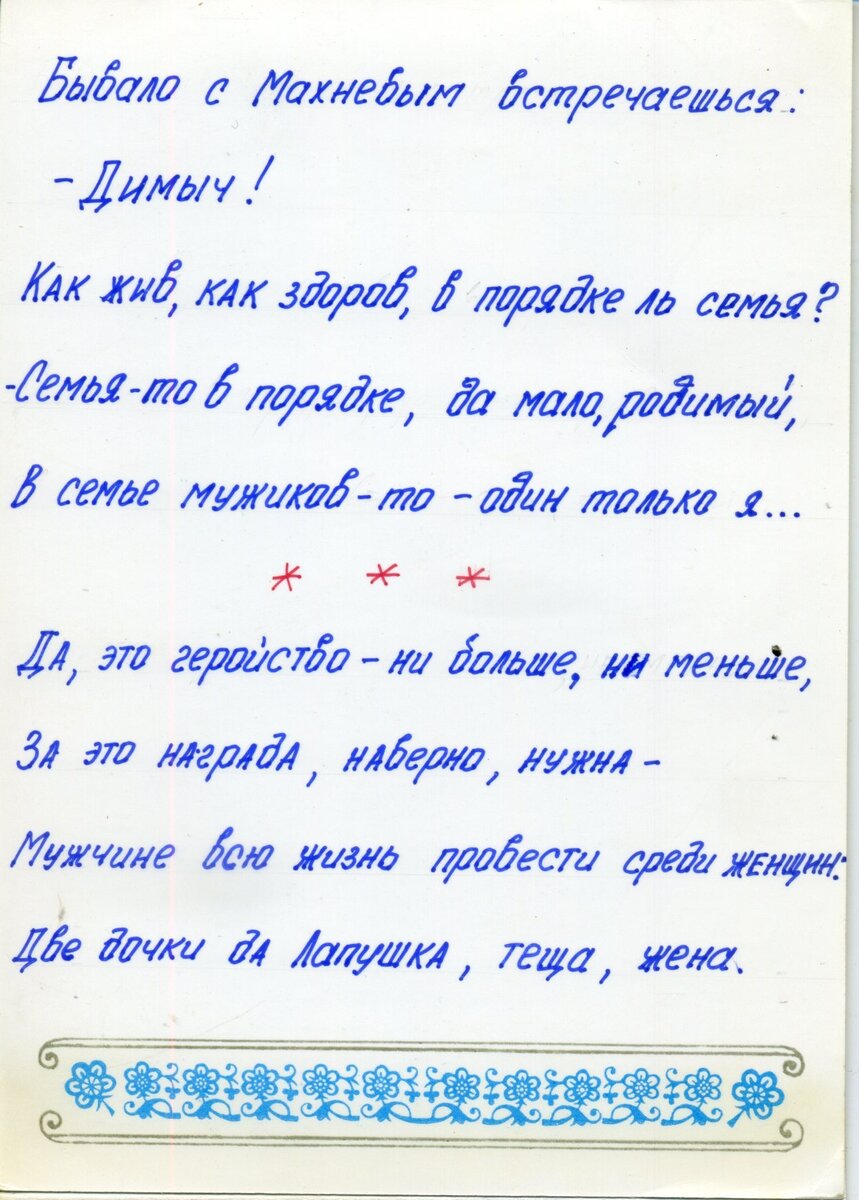 Бывало с Махневым встречаешься:
- Димыч!
Как жив, как здоров, в порядке ль семья?
-Семья-то в порядке, да мало, родимый,
В семье мужиков-то - один только я...
* * *
Да, это геройство - ни больше, ни меньше,
За это награда, наверно, нужна -
Мужчине всю жизнь провести среди женщин:
Две дочки да Лапушка, теща, жена.